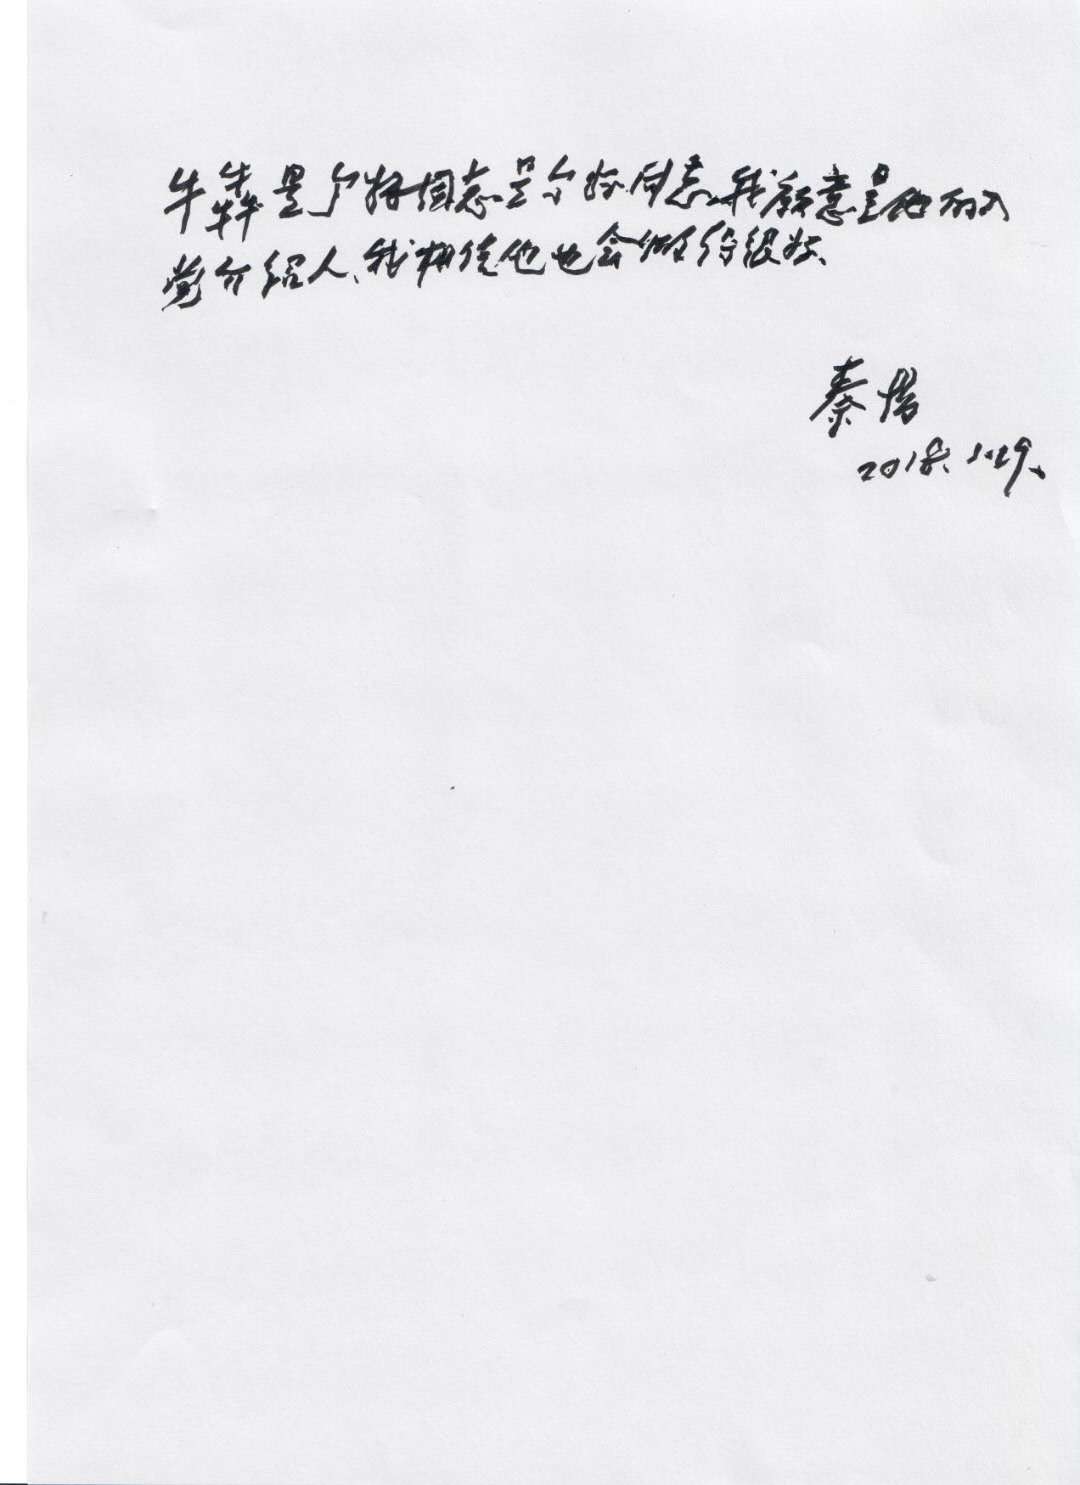 牛犇是个好同志是个好同志、我愿意是他的入
党介绍人、我相信他也会做得很好、
秦怡
2018.1.29、